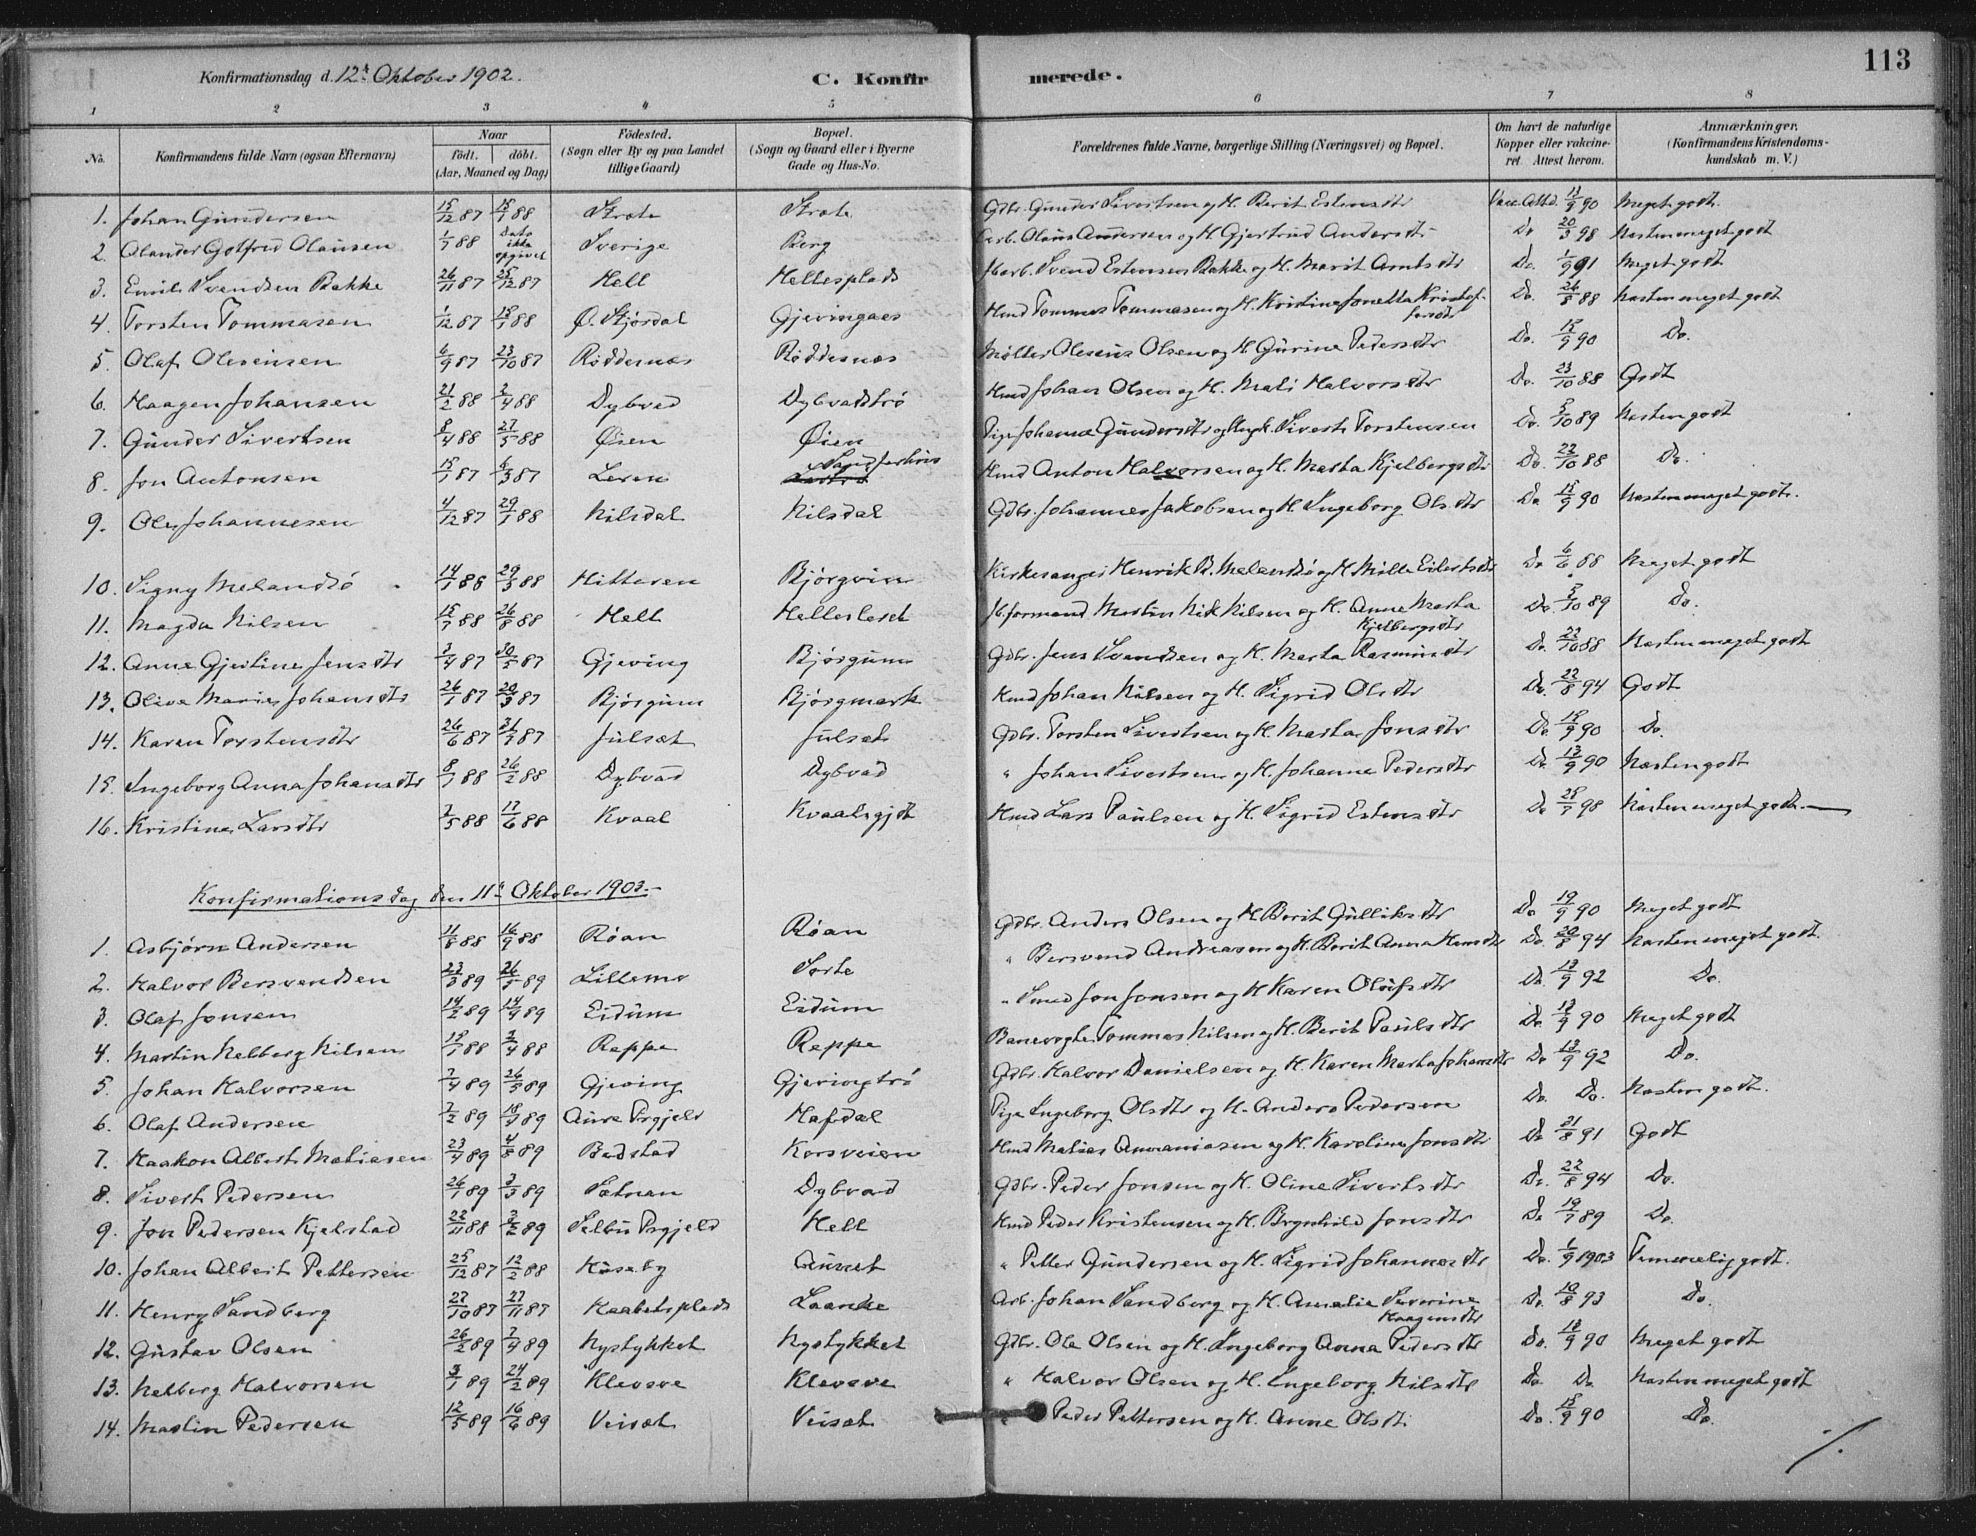 113
Konfirmationsdag d. 12te Oktober 1902. C. Konfirmerede.
1 2 3 4 5 6 7 8
No. Konfirmandens fulde Navn (ogsaa Efternavn) Naar født. døbt. (Aar, Maaned og Dag) Fødested. (Sogn eller By og paa Landet tillige Gaard) Bopæl. (Sogn og Gaard eller i Byerne Gade og Hus-No. Forældrenes fulde Navne, borgerlige Stilling (Næringsvei) og Bopæl. Om havt de naturlige Kopper eller vakcineret. Attest herom. Anmærkninger. (Konfirmandens Kristendomskundskab m. V.)
1. Johan Gundersen 15/12 87 15/1 88 Gdbr. Gunder Sivertsen og H. Berit Estensdtr Vacc. Att. d. 13/9 90 Meget godt.
2. Olander Gotfred Olausen 1/7 88 Dato ikke opgivet Sverige Berg Arb. Olaus Andersen og H. Gjertrud Andersdtr Do 20/3 98 Næsten meget godt
3. Emil Svendsen Bakke 26/11 87 25/12 87 Hell Hellesplads Svend Estensen Bakke og H. Marit Arntsdtr Do. 1/9 91 Meget godt
4. Torsten Tommasen 1/12 87 15/1 88 Ø. Stjørdal Gjevingaas Hmd Tommas Tommasen og H. Kristine Jonetta Kristofersdtr Do. 26/8 88 Næsten meget godt
5. Olaf Olesensen 6/9 87 23/10 87 Røddesnæs Røddesnæs Møller Olesens Olsen og H. Gurine Pedersdtr Do. 15/9 90 Do.
6. Haagen Johansen 21/2 88 2/4 88 Dybvad Dybvadstrø Hmd Johan Olsen og H. Mali Halvorsdtr Do. 23/10 88 Godt
7. Gunder Sivertsen 8/4 88 27/5 88 Øien Øien Pige Johanna Gundersdtr og Ungk. Sivert Torstensen Do. 5/10 89 Næsten godt
8. Jon Antonsen 15/1 87 6/3 87 Leren Hmd Anton Halvorsen og H. Marta Kjelbergsdtr Do. 22/10 88 Do.
9. Ole Johannesen 4/12 87 29/1 88 Nilsdal Nilsdal Gdbr. Johannes Jakobsen og H. Ingeborg Olsdtr Do 15/9 90 Næsten meget godt.
10. Signy Melandsø 14/1 88 29/3 88 Hitteren Bjørgvin Kirkesanger Henrik B. Melandsø og H. Mille Eilertsdtr Do 6/6 88 Meget godt
11. Magda Nilsen 15/7 88 26/8 88 Hell Martin Nik. Nilsen og H. Anne Marta Kjelbergsdtr Do. 5/10 89 Do.
12. Anne Gjertine Jensdtr 3/4 87 30/5 87 Gjeving Bjørgum Gdbr. Jens Svendsen og H. Marta Rasmusdtr Do. 22/10 88 Næsten meget godt
13. Olive Marie Johansdtr 26/1 87 20/3 87 Bjørgum Bjørgmark Hmd Johan Nilsen og H. Sigrid Olsdtr Do. 22/8 94 Godt
14. Karen Torstensdtr 26/6 87 31/7 87 Julset Julset Gdbr. Torsten Sivertsen og H. Marta Jonsdtr Do. 15/9 90 Do.
15. Ingeborg Anna Johansdtr 8/1 88 26/2 88 Dybvad Dybvad " Johan Sivertsen og H. Johanna Pedersdtr Do. 13/9 90 Næsten godt
16. Kristine Larsdtr 3/5 88 17/6 88 Kvaal Kvaalsgjdt Hmd Lars Paulsen og H. Sigrid Estensdtr Do 28/9 98 Næsten meget godt.
Konfirmationsdag den 11te Oktober 1903.
1. Asbjørn Andersen 11/8 88 16/9 88 Røan Røan Gdbr. Anders Olsen og H. Berit Gulliksdtr Do 19/9 90 Meget godt
2. Halvor Bersvendsen 23/3 89 26/5 89 Lillemo Sørte " Bersvend Andreasen og H. Berit Anna Do. 20/8 94 Næsten meget godt.
3. Olaf Jonsen 14/2 89 14/4 89 Eidum Eidum " Smed Jon Jonsen og H Karen Olufsdtr Do. 13/9 92 Do.
4. Martin Helberg Nilsen 15/1 88 2/4 88 Reppe Reppe Banevogter Tommas Nilsen og H. Berit Paulsdtr Do. 13/9 90 Meget godt
5. Johan Halvorsen 7/4 89 26/5 89 Gjeving Gjevingtrø Gdbr. Halvor Danielsen og H. Karen Marta Johansdtr Do 13/9 92 Do.
6. Olaf Andersen 7/2 89 Aure Prgjeld Hafdal Pige Ingeborg Olsdtr og H. Anders Pedersen Do. Do. Næsten godt.
7. Haakon Albert Matiasen 23/4 89 4/8 89 Badstad Korsveien Hmd Matias Ananiasen og H. Karoline Jonsdtr Do 21/8 91 Godt
8. Sivert Pedersen 26/1 89 3/3 89 Sætnan Dybvad Gdbr. Peder Jonsen og H. Oline Sivertsdtr Do. 22/8 94 Do.
9. Jon Pedersen Kjelstad 22/11 88 3/2 89 Selbu Prgjeld Hell Hmd Peder Kristensen og H. Brynhild Jonsdtr Do 19/7 89 Do.
10. Johan Albert Pettersen 25/12 87 12/2 88 Hoseby Aunet " Petter Gundersen og H. Sigrid Johannesdtr Do. 1/9 1903 Temmelig godt.
11. Henry Sandberg 27/10 87 27/11 87 Kaabetsplads Laanke Arb. Johan Sandberg og H. Amalie Severine Haagensdtr Do. 10/8 93 Do.
12. Gustav Olsen 26/2 89 7/4 89 Nystykket Nystykket Gdbr. Ole Olsen og H. Ingeborg Anna Pedersdtr Do. 18/9 90 Meget godt
13. Helberg Halvorsen 3/1 89 24/2 89 Klevsve Klevsve " Halvor Olsen og H. Ingeborg Nilsdtr Do. Do. Næsten meget godt
14. Martin Pedersen 12/5 89 16/6 89 Veisæt Veisæt Peder Pettersen og H. Anne Olsdt. Do. 15/9 90 Do.